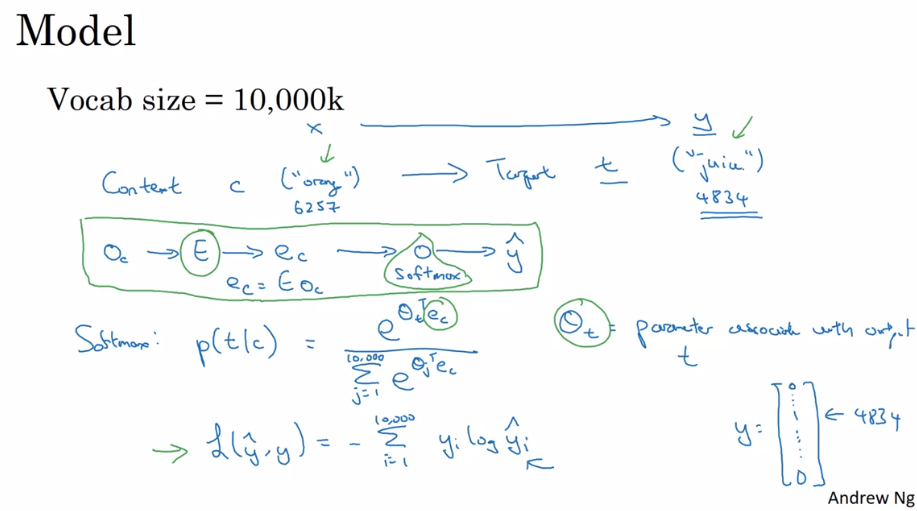 Model
Vocab size = 10,000k
x → y
Content c ("orange") → Target t ("juice")
6257 4834
O_c → E → e_c → O → ŷ
softmax
e_c = E O_c
Softmax: p(t|c) = e^{θ_t^T e_c} / Σ_{j=1}^{10,000} e^{θ_j^T e_c}
θ_t = parameter associated with output t
L(ŷ, y) = - Σ_{i=1}^{10,000} y_i log ŷ_i
y = [0 ⋮ 1 ⋮ 0] ← 4834
Andrew Ng